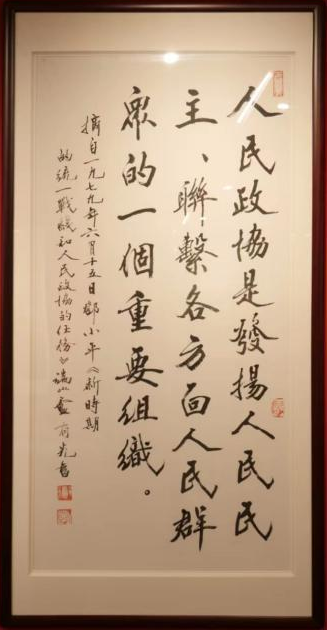 人民政協是發揚人民民
主、聯繫各方面人民群
眾的一個重要組織。
摘自一九七九年六月十五日鄧小平《新時期
的統一戰綫和人民政協的任務》